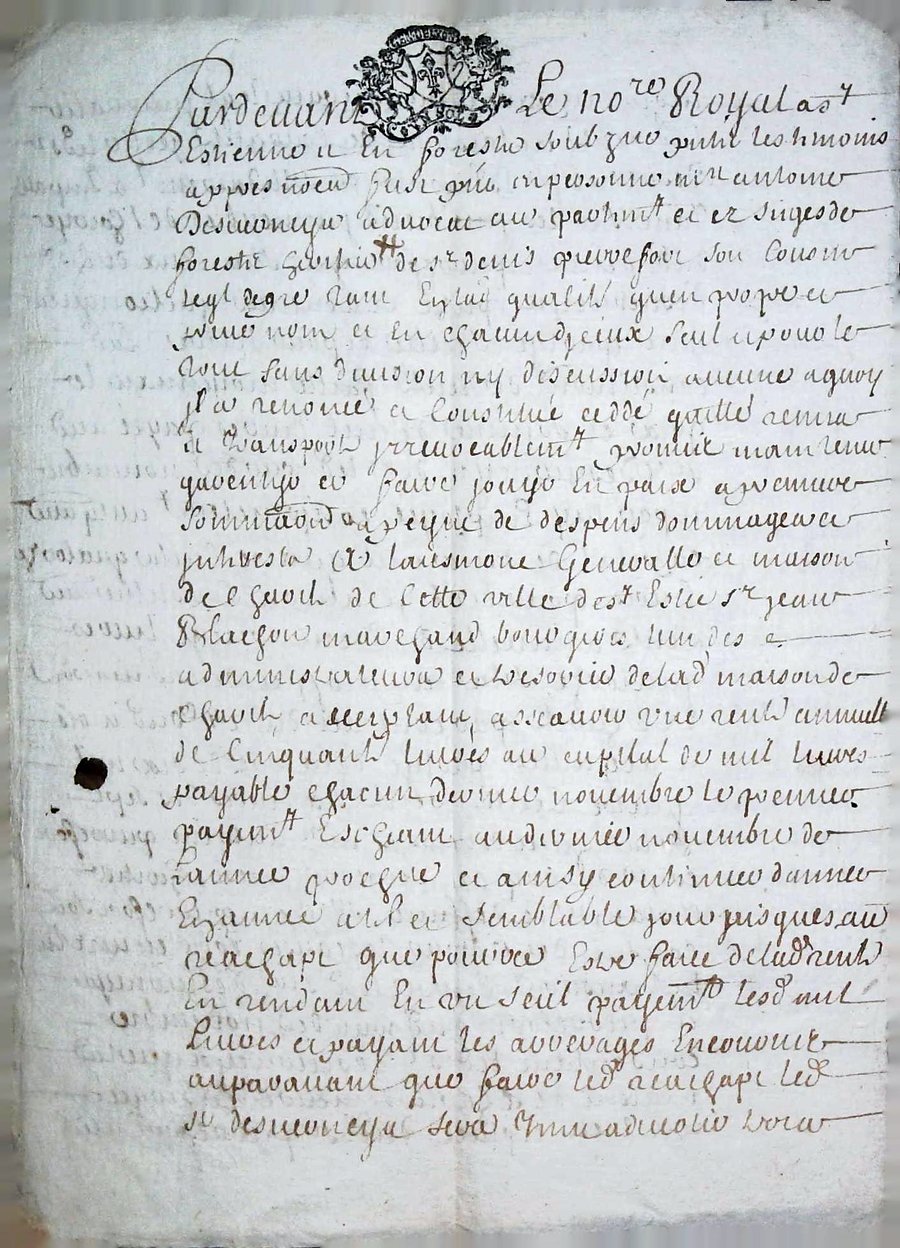 Pardevant Le no.re Royal a st
Estienne en forestz soubzne présent les tesmoins
apres nom̃es fust p̃nt en personne m.re antoine
Desverneys advocat au parlem.t et ez sieges de
forestz de s.r denis pierrefort son cousin
tant en lad qualité qu'en propre et
privé nom et en chacun d'jceux seul et pour le
tout sans division ny discussion aucune a quoy
jl a renoncé a constitué ceddé quitté remis
et transporté jrrevocablem.t promis maintenir
garentyr et faire jouyr en paix a premiere
sommaõn a peyne de despens dommages et
jnterests a l'ausmone Generalle et maison
de Charité de Cette ville de s.t Estie s.r jean
marchand bourgeois l'un des
administrateurs et tresorier de lad maison de
Charité acceptant assavoir une rente annuelle
de Cinquante livres au capital de mil livres
payable chacun dernier novembre le premier
payem.t Escheant au dernier novembre de
l'année proche et ainsy continuer d'année
En année a tel et semblable jour jusques au
reachapt que pourra Estre faict de lad rente
En rendant En un seul payem.t lesd mil
livres et payant les arrerages Encourus
auparavant que faire led reachapt led
s.r desverneys sera